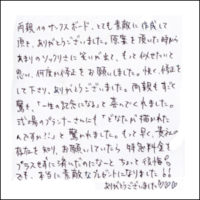 両親へのサンクスボード、とても素敵に作成して
頂き、ありがとうございました。原案を頂いた時から
あまりのソックリさに笑いが出て、もっと似せたいと
思い、何度か修正をお願いしました。快く修正を
して下さり、ありがとうございました。両親もすごく
驚き、「一生の記念になる」と喜んでくれました。
式場のプランナーさんにも「どなたが描かれた
んですか!?」と驚かれました。もっと早く、貴社の
存在を知り、お願いしていたら特急料金を
プラスせずに済んだのになーとちょっと後悔。
でも、本当に素敵なプレゼントになりました!!
ありがとうございました♡♡♡